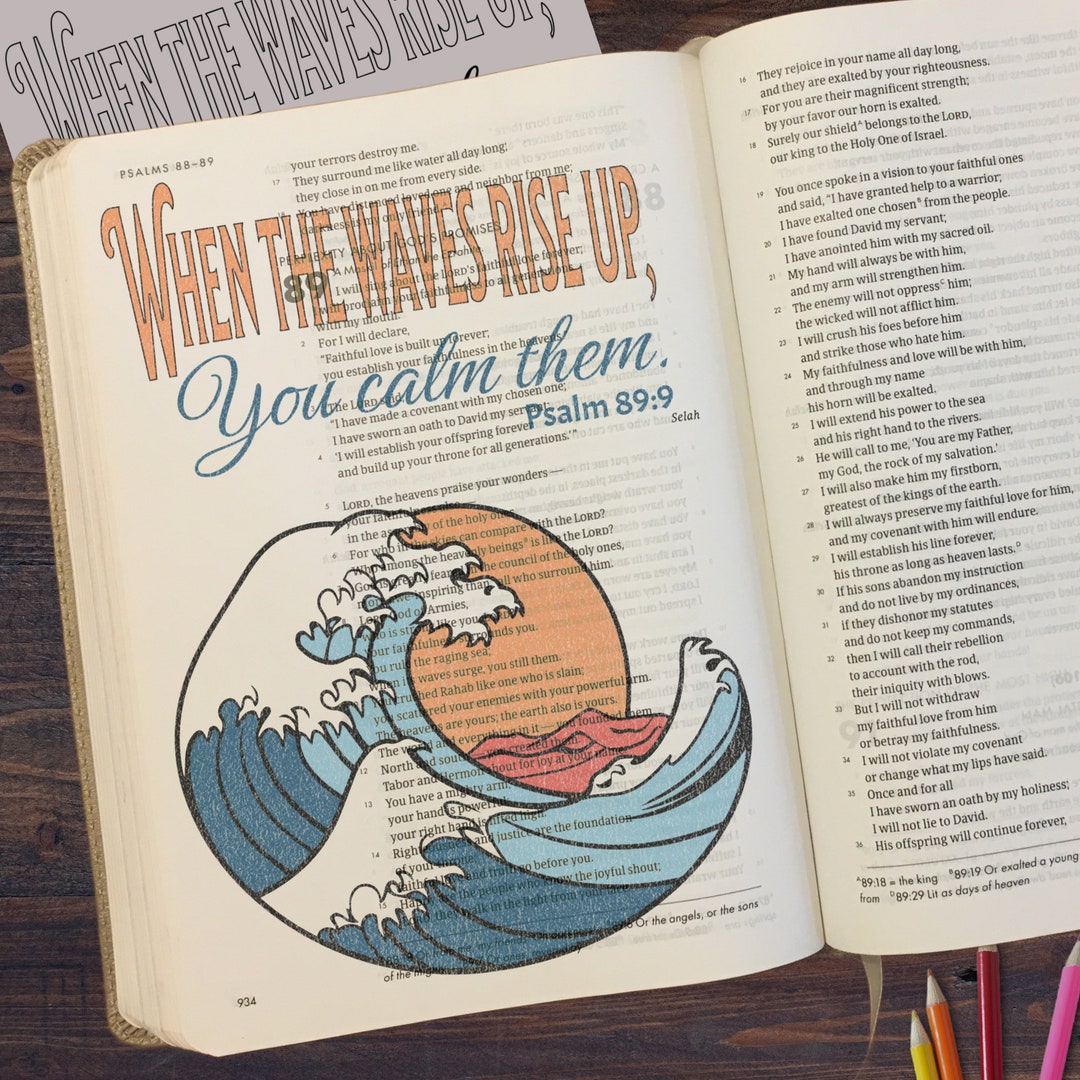 WHEN THE WAVES RISE UP,
PSALMS 88–89
your terrors destroy me.
17 They surround me like water all day long;
they close in on me from every side.
You have distanced loved one and neighbor from me;
darkness is my only friend.
WHEN THE WAVES RISE UP,
PERPLEXITY ABOUT GOD'S PROMISES
89
I will sing about the LORD's faithful love forever;
I will proclaim your faithfulness to all generations
with my mouth.
2 For I will declare,
"Faithful love is built up forever;
you establish your faithfulness in the heavens
You calm them.
The LORD said,
"I have made a covenant with my chosen one;
I have sworn an oath to David my servant
Psalm 89:9
4 'I will establish your offspring forever
and build up your throne for all generations.'"
Selah
5 LORD, the heavens praise your wonders —
your faithfulness
in the as of the holy
6 For who in the skies can compare with the LORD?
Who among the heavenly beings is like the LORD?
God is greatly feared in the council of the holy ones,
more awe-inspiring than all who surround him.
LORD God of Armies,
who is strong like you
your faithfulness surrounds you.
you rule the raging sea;
when its waves surge, you still them.
you crushed Rahab like one who is slain;
you scattered your enemies with your powerful arm.
The heavens are yours; the earth also is yours.
The world and everything in it — you founded them
North and south you created them
12 Tabor and Hermon shout for joy at your name
13 You have a mighty arm
your hand is powerful
your right hand is lifted high.
14 Righteousness and justice are the foundation
of your throne
faithful love and truth go before you.
15 Happy are the people who know the joyful shout;
LORD, they walk in the light from your
Or the angels, or the sons
of the might
934
16 They rejoice in your name all day long,
and they are exalted by your righteousness.
17 For you are their magnificent strength;
by your favor our horn is exalted.
18 Surely our shieldᴬ belongs to the LORD,
our king to the Holy One of Israel.
19 You once spoke in a vision to your faithful ones
and said, "I have granted help to a warrior;
I have exalted one chosenᴮ from the people.
20 I have found David my servant;
I have anointed him with my sacred oil.
21 My hand will always be with him,
and my arm will strengthen him.
22 The enemy will not oppressᶜ him;
the wicked will not afflict him.
23 I will crush his foes before him
and strike those who hate him.
24 My faithfulness and love will be with him,
and through my name
his horn will be exalted.
25 I will extend his power to the sea
and his right hand to the rivers.
26 He will call to me, 'You are my Father,
my God, the rock of my salvation.'
27 I will also make him my firstborn,
greatest of the kings of the earth.
28 I will always preserve my faithful love for him,
and my covenant with him will endure.
29 I will establish his line forever,
his throne as long as heaven lasts.ᴰ
30 If his sons abandon my instruction
and do not live by my ordinances,
31 if they dishonor my statutes
and do not keep my commands,
32 then I will call their rebellion
to account with the rod,
their iniquity with blows.
33 But I will not withdraw
my faithful love from him
or betray my faithfulness.
34 I will not violate my covenant
or change what my lips have said.
35 Once and for all
I have sworn an oath by my holiness;
I will not lie to David.
36 His offspring will continue forever,
ᴬ89:18 = the king ᴮ89:19 Or exalted a young
from ᴰ89:29 Lit as days of heaven